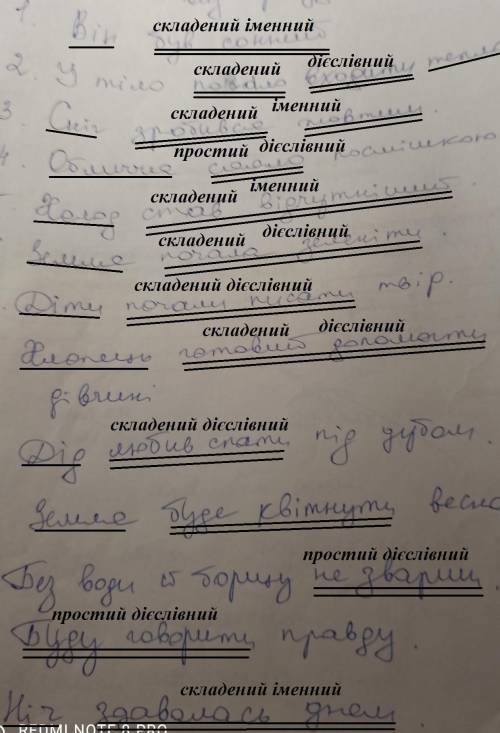 1.
складений іменний
Він був сонний
складений дієслівний
2. У тіло почало входити тепло
складений іменний
3. Сніг зробився жовтим.
простий дієслівний
4. Обличчя сяяло посмішкою
складений іменний
Холод став відчутніший.
складений дієслівний
Земля почала зеленіти.
складений дієслівний
Діти почали писати твір.
складений дієслівний
Хлопець готовий допомогти
дівчині
складений дієслівний
Дід любив спати під дубом.
Земля буде квітнути весно
простий дієслівний
Без води й борщу не звариш.
простий дієслівний
Буду говорити правду.
складений іменний
Ніч здавалась днем.
REDMI NOTE 8 PRO